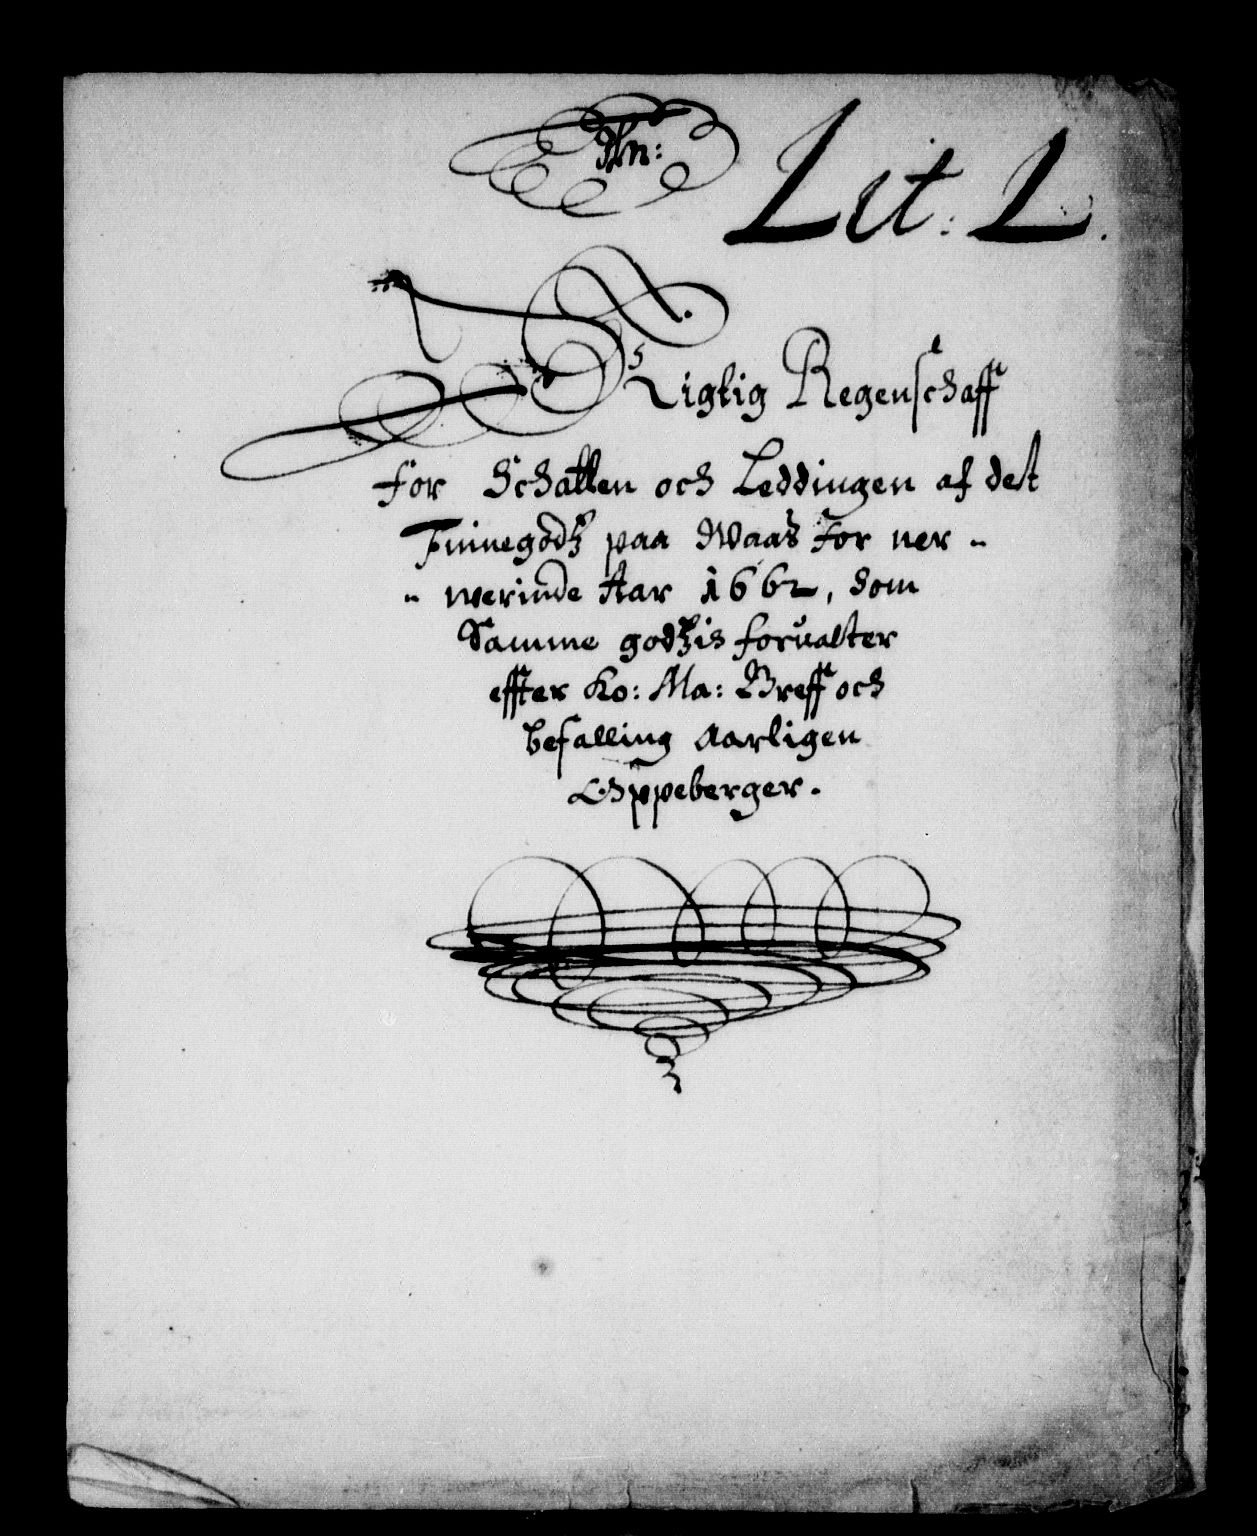 An:
Lit: L.
Rigtig Regenschaff
For Schatten och Leddingen af det
Finnegodz paa Waas for ner-
-werinde Aar 1662, Som
Samme godzis forualter
effter Ko: Ma: Breff och
befalling Aarligen
Oppeberger.